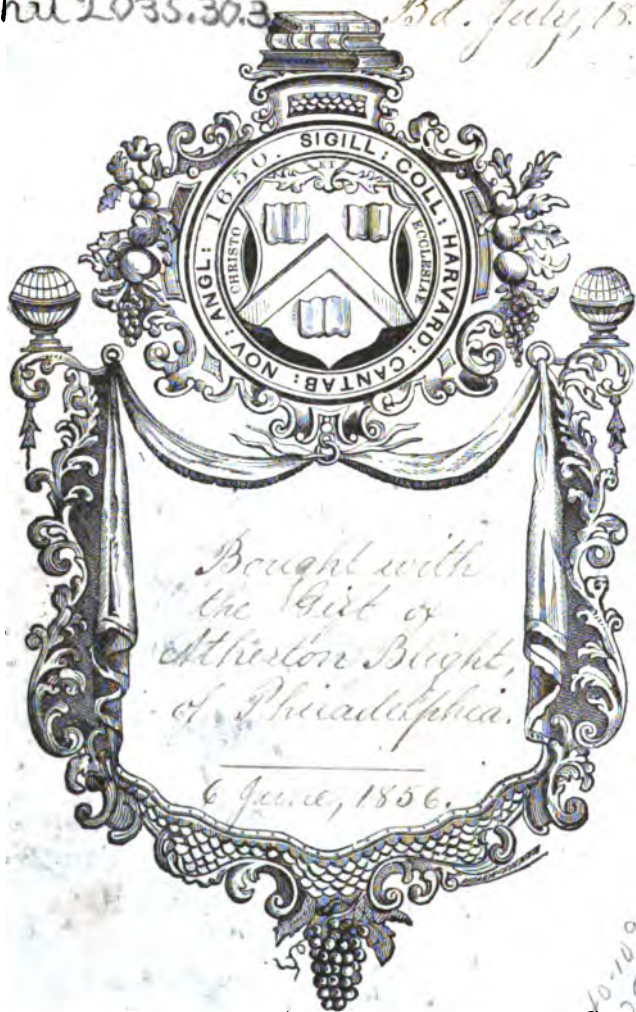 2035.30.3
Bd. July, 18
SIGILL: COLL: HARVARD: CANTAB: NOV: ANGL: 1650.
CHRISTO ET ECCLESIAE
Bought with
the Gift of
Atherton Blight,
of Philadelphia.
6 June, 1856.